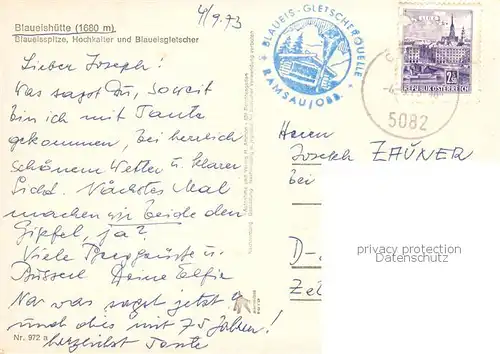 Blaueishütte (1680 m)
Blaueisspitze, Hochkalter und Blaueisgletscher
4/9.73
BLAUEIS-GLETSCHERQUELLE
RAMSAU/OBB.
REPUBLIK ÖSTERREICH
5082
Lieber Joseph!
Was sagst Du, soweit
bin ich mit Tante
gekommen, bei herrlich
schönem Wetter u. klarer
Sicht. Nächstes Mal
machen wir beide den
Gipfel, ja?
Viele Berggrüße u.
Busserl Deine Elfie
Na was sagst jetzt
und dies mit 75 Jahren!
herzlichst Tante
Herrn
Joseph ZAUNER
bei
D-
privacy protection
Datenschutz
Nr. 972 a